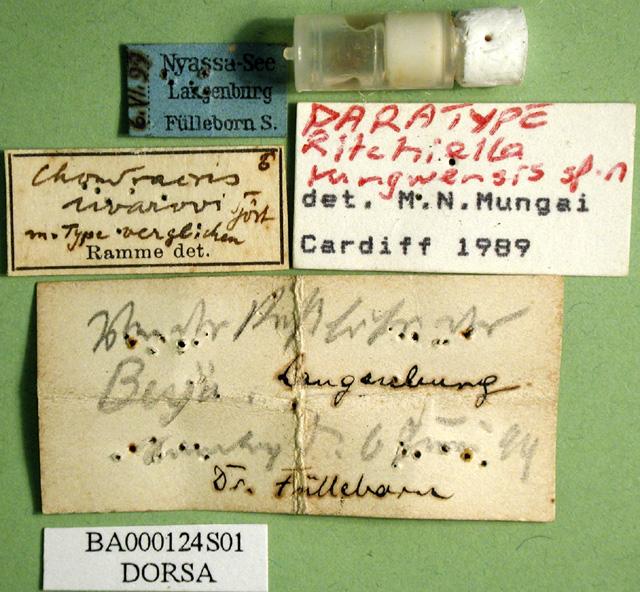 6.VI.99
Nyassa-See
Langenburg
Fülleborn S.
PARATYPE
Ritchiella
rungwensis sp.n
det. M.N.Mungai
Cardiff 1989
♂
Chondracris
uvarovi Sjöst
m. Type verglichen
Ramme det.
Langenburg
6 Juni 99
Dr. Fülleborn
BA000124S01
DORSA